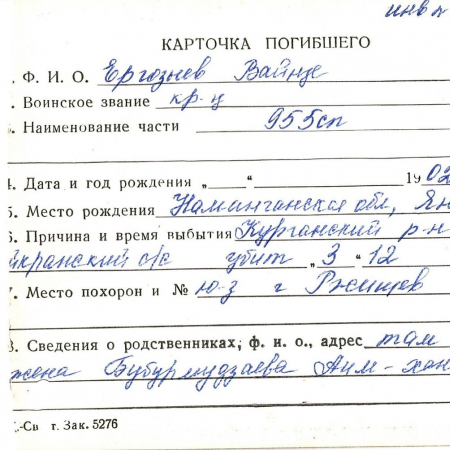 инв л
КАРТОЧКА ПОГИБШЕГО
. Ф. И. О. Ергозыев Вайнце
. Воинское звание кр-ц
. Наименование части 955сп
4. Дата и год рождения „ “ 1902
5. Место рождения Наминганская обл, Ян
6. Причина и время выбытия Курганский р-н
йкранский с/с убит „3“ 12
7. Место похорон и № ю-з г Ржищев
8. Сведения о родственниках, ф. и. о., адрес там
жена Бубурмудзаева Аим-хан
.-Св т. Зак. 5276